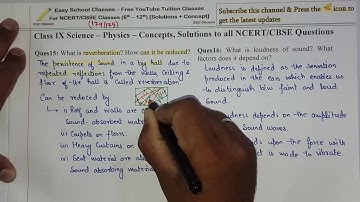 Easy School Classes – Free YouTube Tuition Classes
For NCERT/CBSE Classes (6th – 12th) [Solutions + Concept]
Subscribe this channel & Press the icon to get the latest updates
(174/175)
Class IX Science – Physics – Concepts, Solutions to all NCERT/CBSE Questions
Ques15: What is reverberation? How can it be reduced?
The persistence of sound in a big hall due to
repeated reflections from the walls, ceiling &
floor of the hall is called reverberation.
Can be reduced by
i) Roof and walls are
Sound-absorbent mater
ii) Carpets on floor.
iii) Heavy Curtains on
iv) Seat material are als
Sound absorbing materia
Ques16: What is loudness of sound? What
factors does it depend on?
Loudness is defined as the sensation
produced in the ears which enables us
to distinguish b/w faint and loud
Sound.
oudness depends on the amplitude
Sound waves.
ds upon the force with
ct is made to vibrate.